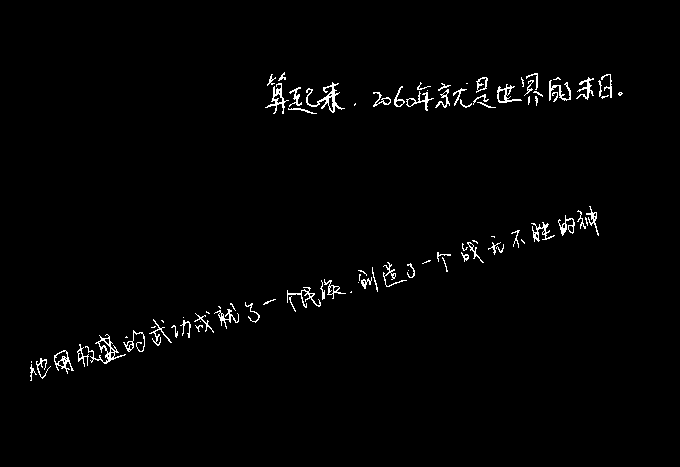 算起来，2060年就是世界的末日。
他用极盛的武功成就了一个民族，创造了一个战无不胜的神